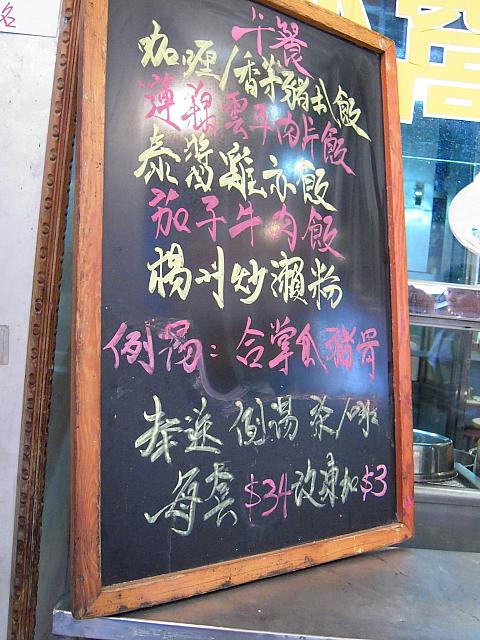 午餐
咖喱/香茅豬扒飯
雲耳肉片飯
泰醬雞亦飯
茄子牛肉飯
楊州炒瀨粉
例湯：合掌瓜豬骨
奉送例湯茶/啡
每套$34改凍加$3
名